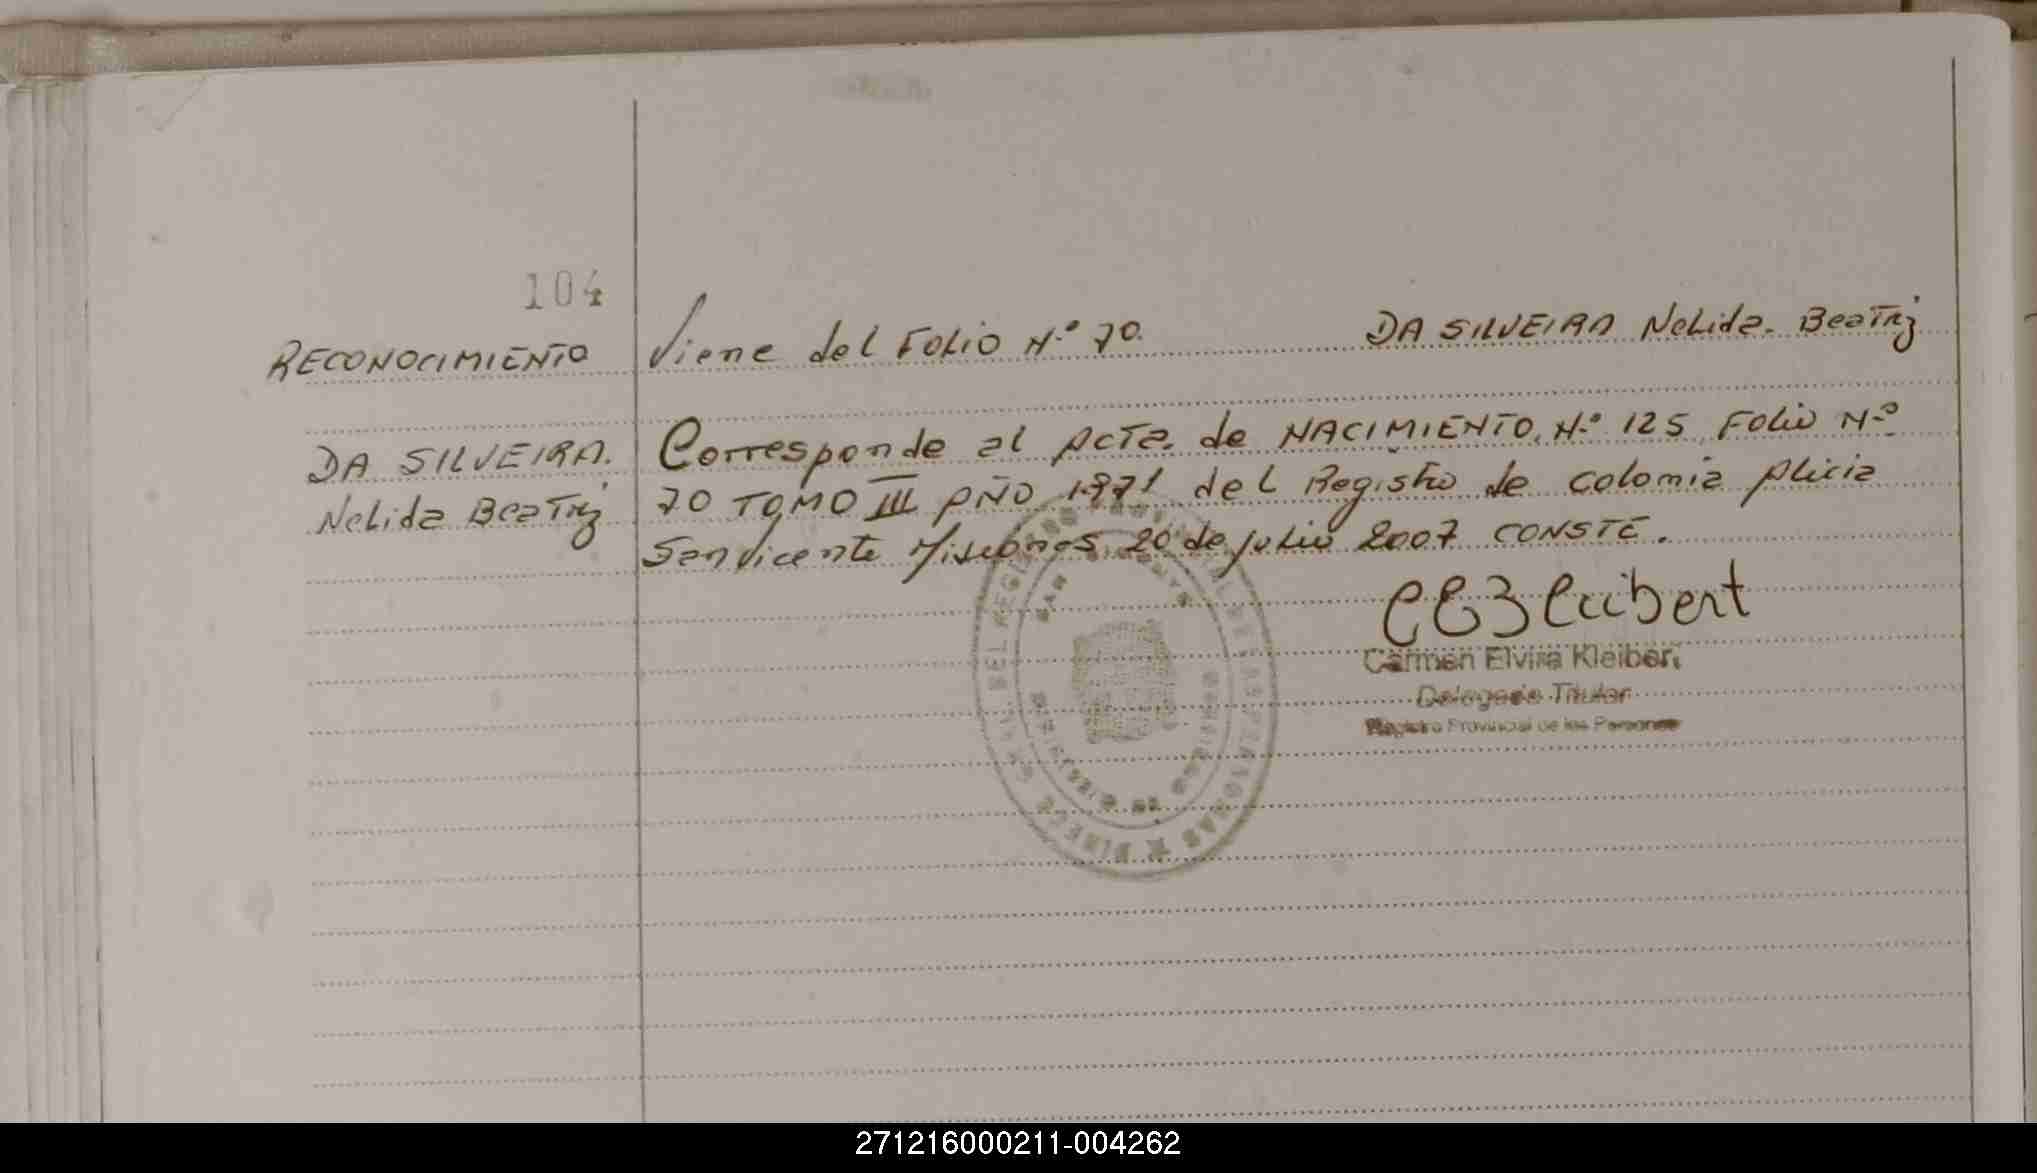 104
RECONOCIMIENTO
DA SILVEIRA.
Nelida Beatriz
Viene del Folio N.º 70. DA SILVEIRA Nelida. Beatriz
Corresponde al Acta. de NACIMIENTO. N.º 125 Folio N.º
70 TOMO III AÑO 1971 del Registro de colonia Alicia
San Vicente Misiones 20 de julio 2007 CONSTE.
CEKleibert
Carmen Elvira Kleibert
Delegada Titular
Registro Provincial de las Personas
271216000211-004262